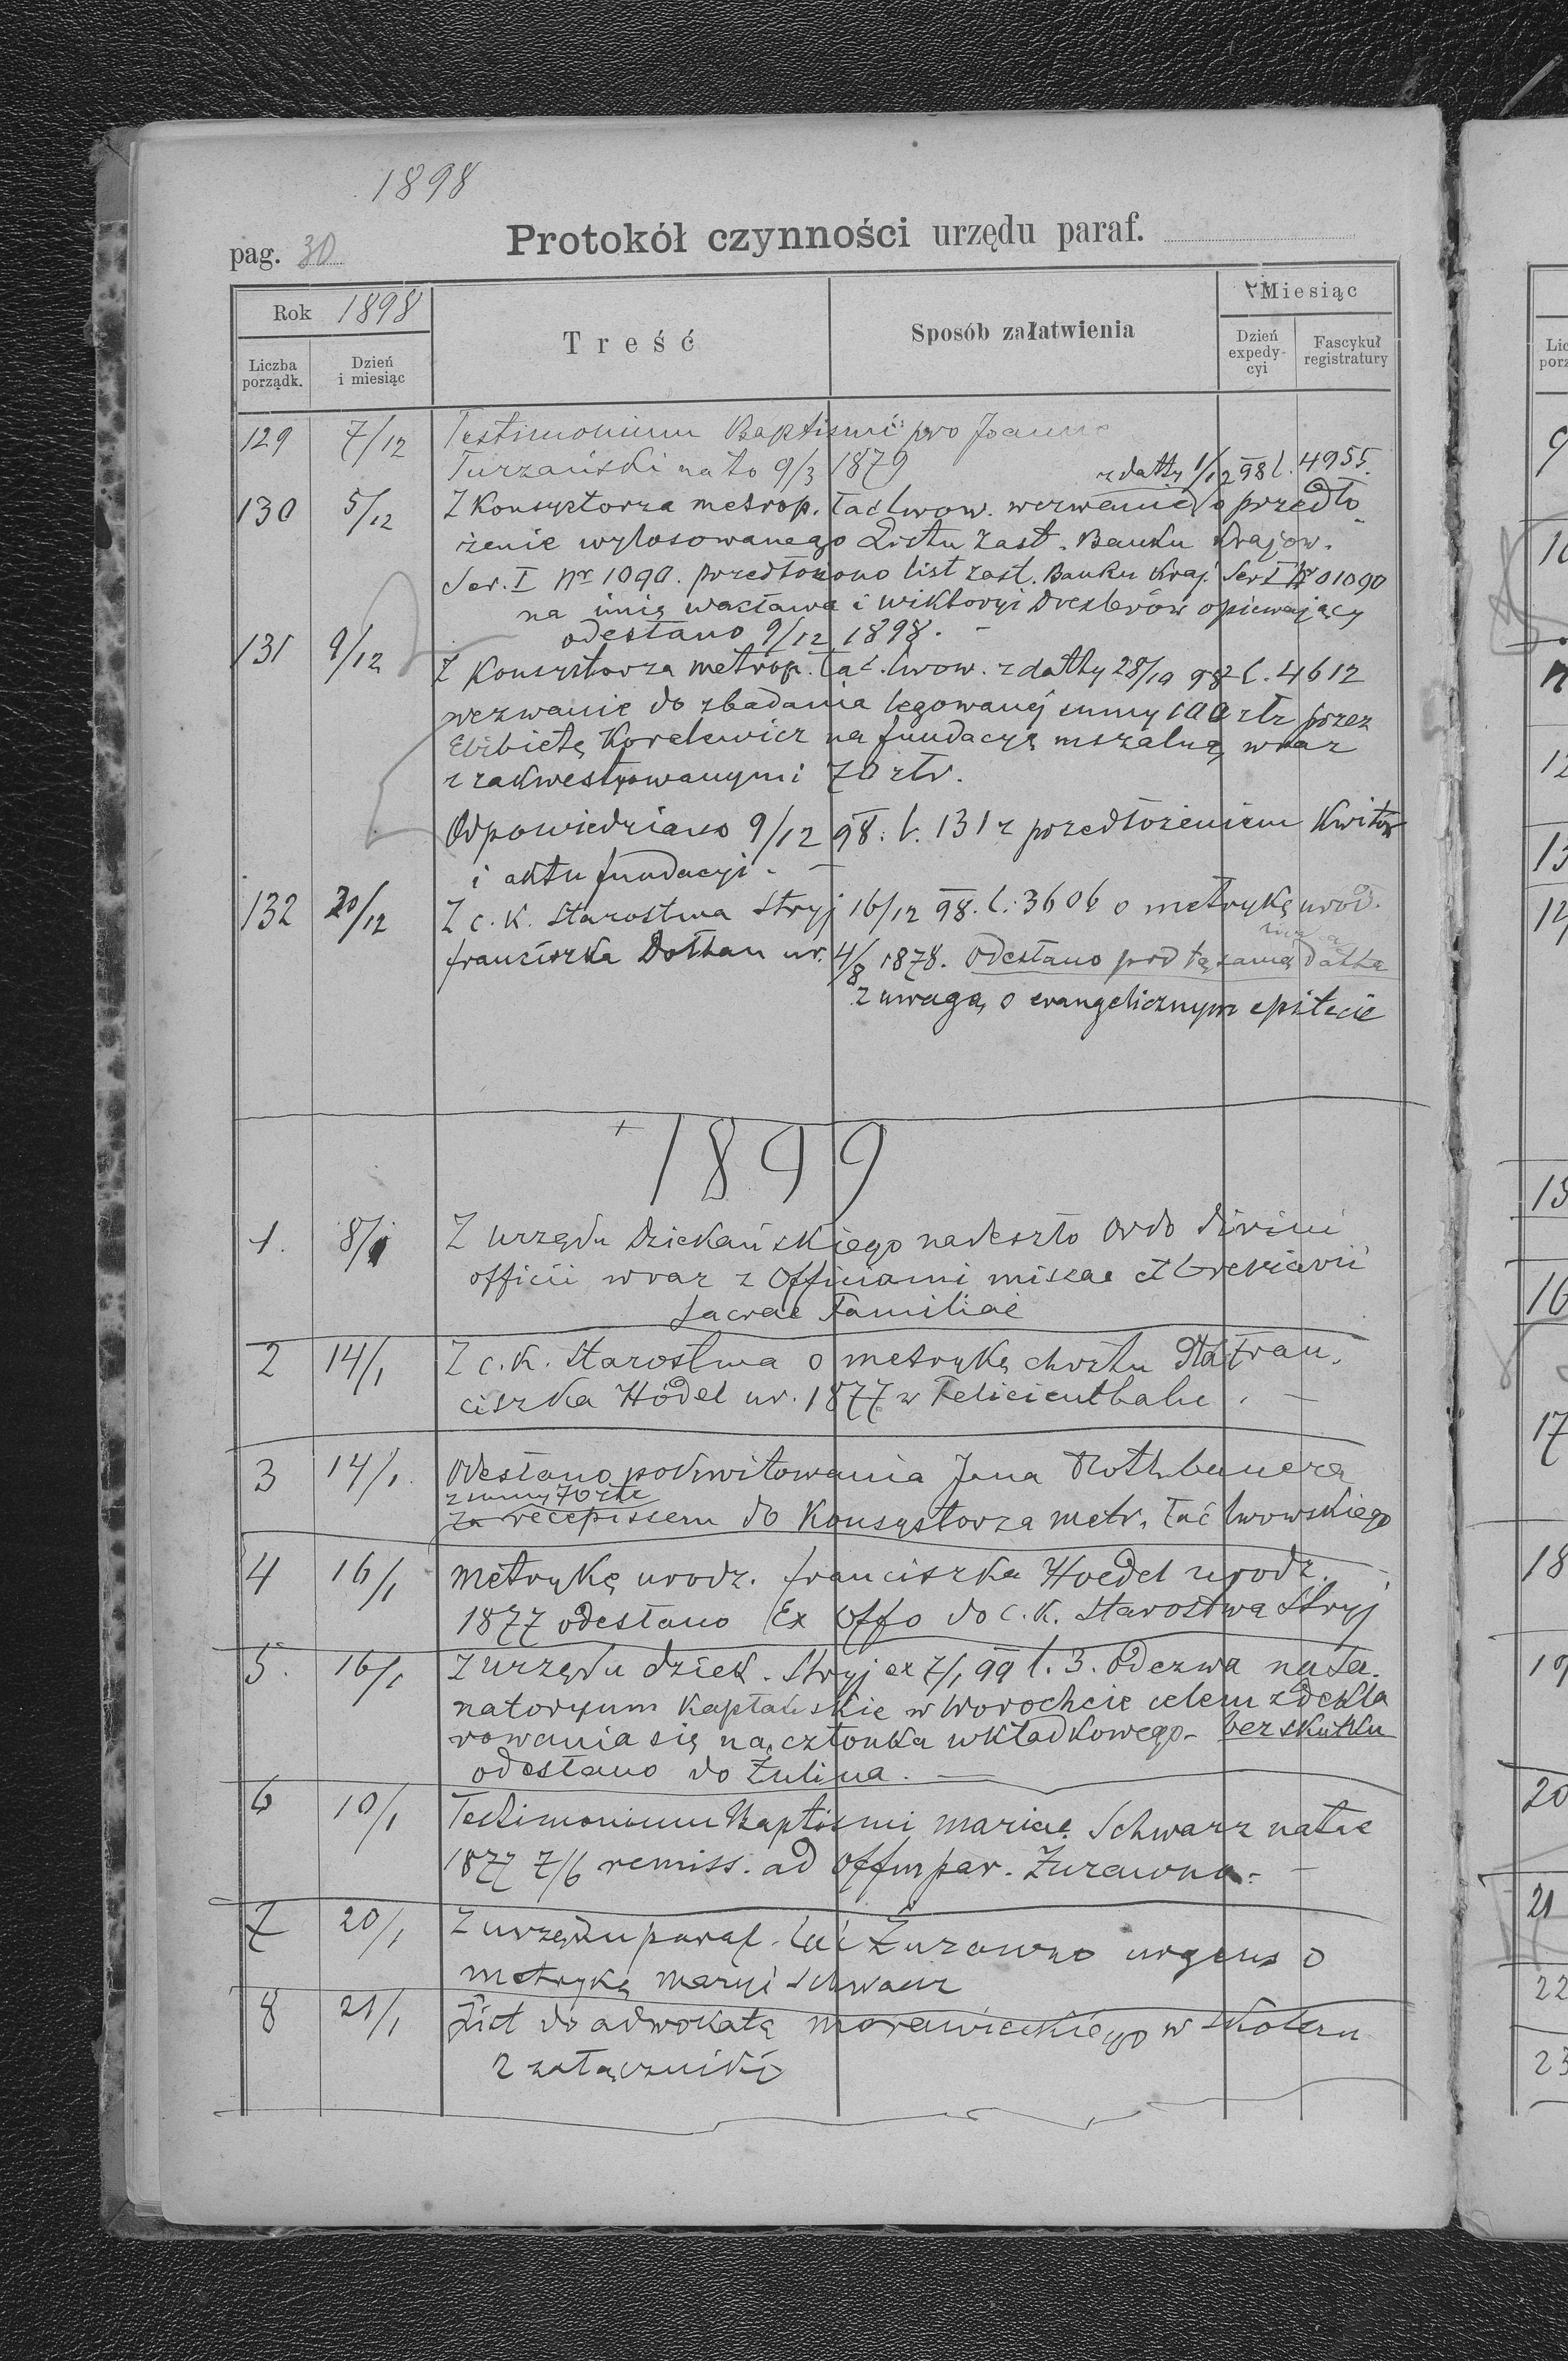 1898
pag. 30 Protokół czynności urzędu paraf.
Rok 1898 Treść Sposób załatwienia Miesiąc
Liczba porządk. Dzień i miesiąc Dzień expedy-cyi Fascykuł registratury
129 7/12 Testimonium Baptismi pro Joanne
Turzański nato 9/3 1879
z datty 1/12 98 l. 4955.
130 5/12 Z Konsystorza metrop. łac lwow. wezwanie o przedło-
żenie wylosowanego Listu Zast. Banku Krajow.
Ser. I Nr 1090. przedłożono list zast. Banku Kraj. Ser I Nr 01090
na imię wacława i wiktoryi Drexlerów opiewający
odesłano 9/12 1898. -
131 9/12 Z Konsystorza metrop. łac. lwow. z datty 28/10 98 l. 4612
wezwanie do zbadania legowanej sumy 100 złr przez
Elżbietę Korelewicz na fundacyę mszalną wraz
z zakwestyowanymi 70 złr.
Odpowiedziano 9/12 98. l. 131 z przedłożeniem Kwitów
i aktu fundacyi. -
132 20/12 Z c. K. Starostwa Stryj 16/12 98. l. 3606 o metrykę urod.
franciszka Dothan ur. 4/8 1878. Odesłano pod tą samą dattą
z uwagą o ewangelicznym epitecie
1899
1. 8/1 Z urzędu Dziekańskiego nadeszło Ordo divini
officii wraz z Officiami missae et breviarii
Sacrae Familiae
2 14/1 Z c. K. Starostwa o metrykę chrztu dla Fran.
ciszka Hödel ur. 1877 w Felicienthalu. -
3 14/1. Odesłano pokwitowania Jana Rothbauera
z sumy 70 złr
za recepissem do Konsystorza metr. łac lwowskiego
4 16/1 metrykę urodz. franciszka Hoedel urodz. -
1877 odesłano Ex Offo do c. K. Starostwa Stryj
5. 16/1 Z urzędu dziek. Stryj ex 7/1 99 l. 3. Odezwa na Sa.
natoryum Kapłańskie w Worochcie celem zdekla
rowania się na członka wkładkowego - bez skutku
odesłano do Żulina. -
6 10/1 Testimonium Baptismi mariae Schwarz natae
1877 7/6 remiss. ad offm par. Żurawno. -
7 20/1 Z urzędu paraf. łać Żurawno urgens o
metrykę maryi Schwarz
8 21/1 List do adwokata morawieckiego w Skolem
z załączniki